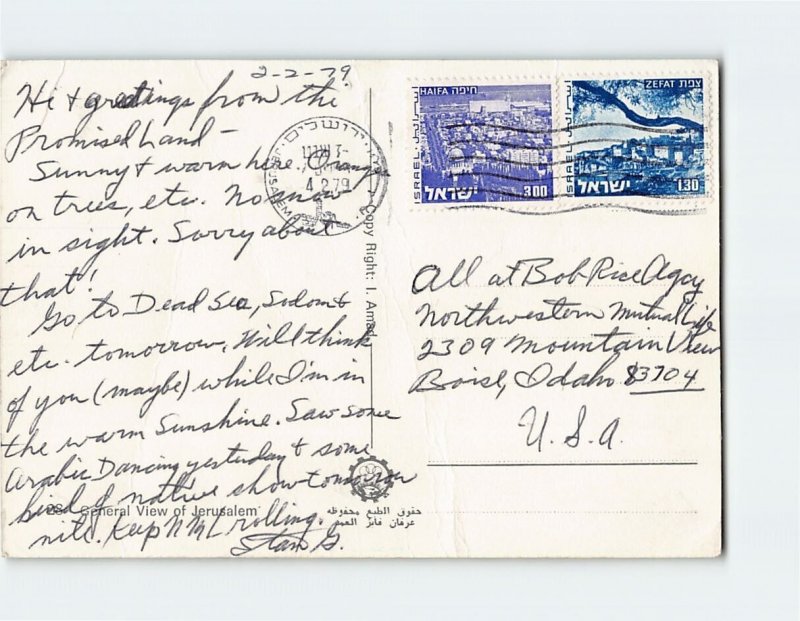 2-2-79.
Hi & greetings from the
Promised Land -
Sunny & warm here. Oranges
on trees, etc. No snow
in sight. Sorry about
that!
Go to Dead Sea, Sodom &
etc. tomorrow. Will think
of you (maybe) while I'm in
the warm sunshine. Saw some
Arabic Dancing yesterday & some
kind of native show tomorrow
nite. Keep NML rolling.
Stan G.
General View of Jerusalem
Copy Right: I. Amad
حقوق الطبع محفوظة
JERUSALEM
ירושלים
4 2 79
HAIFA חיפה
ISRAEL
ישראל
3.00
ZEFAT צפת
ISRAEL
ישראל
1.30
All at Bob Rice Agcy
Northwestern Mutual Life
2309 Mountain View
Boise, Idaho 83704
U.S.A.